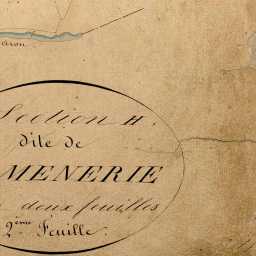 Section H.
dite de
MENERIE
deux feuilles
2ème Feuille.